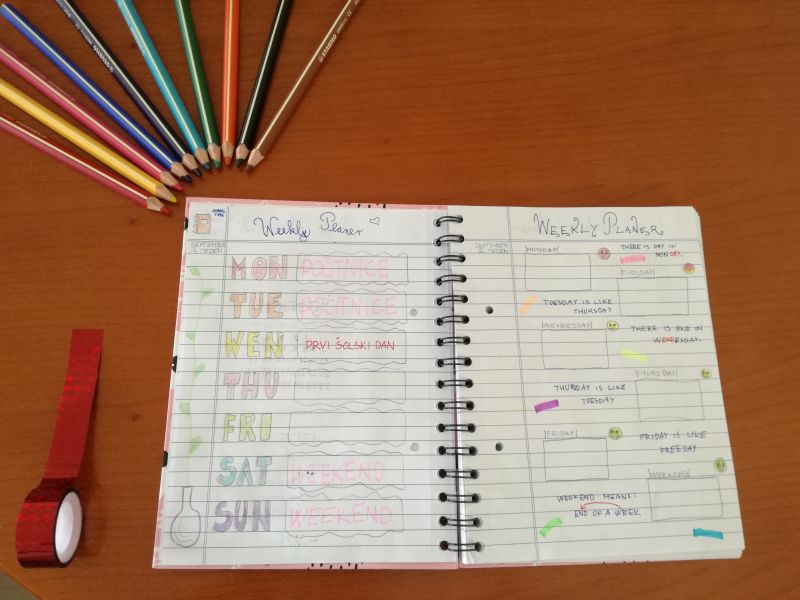 Weekly Planer
SEPTEMBER
1. TEDEN
MON POČITNICE
TUE POČITNICE
WEN PRVI ŠOLSKI DAN
THU
FRI
SAT WEEKEND
SUN WEEKEND
WEEKLY PLANER
SEPTEMBER
2. TEDEN
MONDAY
THERE IS DAY IN
MONDAY.
TUESDAY
TOESDAY IS LIKE
THUHSDAY
WENDESDAY
THERE IS END IN
WENDESDAY.
THURSDAY IS LIKE
TUESDAY
FRIDAY
FRIDAY IS LIKE
FREEDAY
WEEKEND
WEEKEND MEANS:
END OF A WEEK